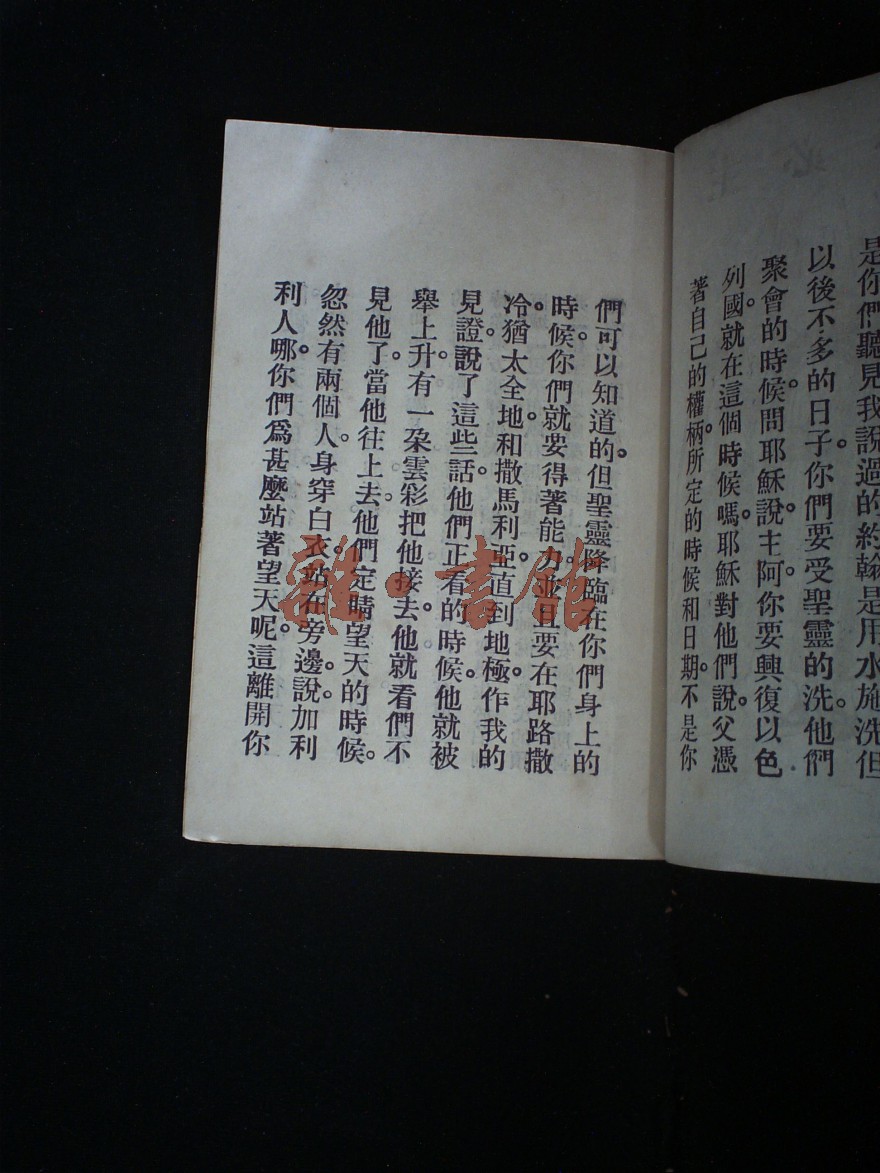 是你們聽見我說過的約翰是用水施洗但
以後不多的日子。你們要受聖靈的洗。他們
聚會的時候。問耶穌說。主阿。你要興復以色
列國。就在這個時候嗎。耶穌對他們說。父憑
著自己的權柄。所定的時候和日期。不是你
們可以知道的。但聖靈降臨在你們身上的
時候。你們就要得著能力。並且要在耶路撒
冷。猶太全地。和撒馬利亞。直到地極。作我的
見證。說了這些話。他們正看的時候。他就被
舉上升。有一朶雲彩。把他接去。他就看們不
見他了。當他往上去。他們定睛望天的時候。
忽然有兩個人。身穿白衣。站在旁邊。說。加利
利人哪。你們為甚麼站著望天呢。這離開你
雜·書館